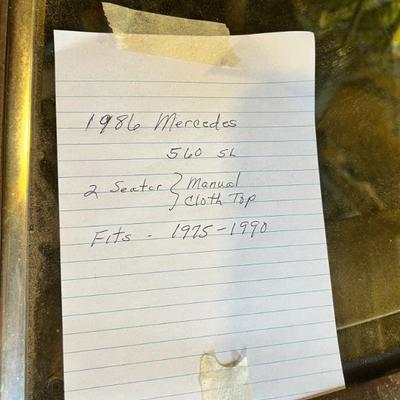 1986 Mercedes
560 SL
2 Seater } Manual
Cloth Top
Fits - 1975-1990